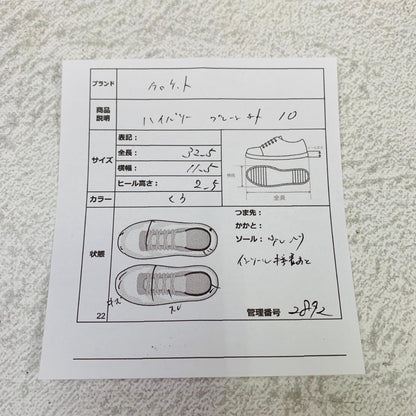 ブランド ロケット
商品説明 ハイパリー プレーント 10
サイズ 表記：
全長： 32.5
横幅： 11.5
ヒール高さ： 2.5
横幅
全長
カラー くろ
状態 つま先：
かかと：
ソール：
インソール 接着あと
キズ スレ
22 管理番号 2892